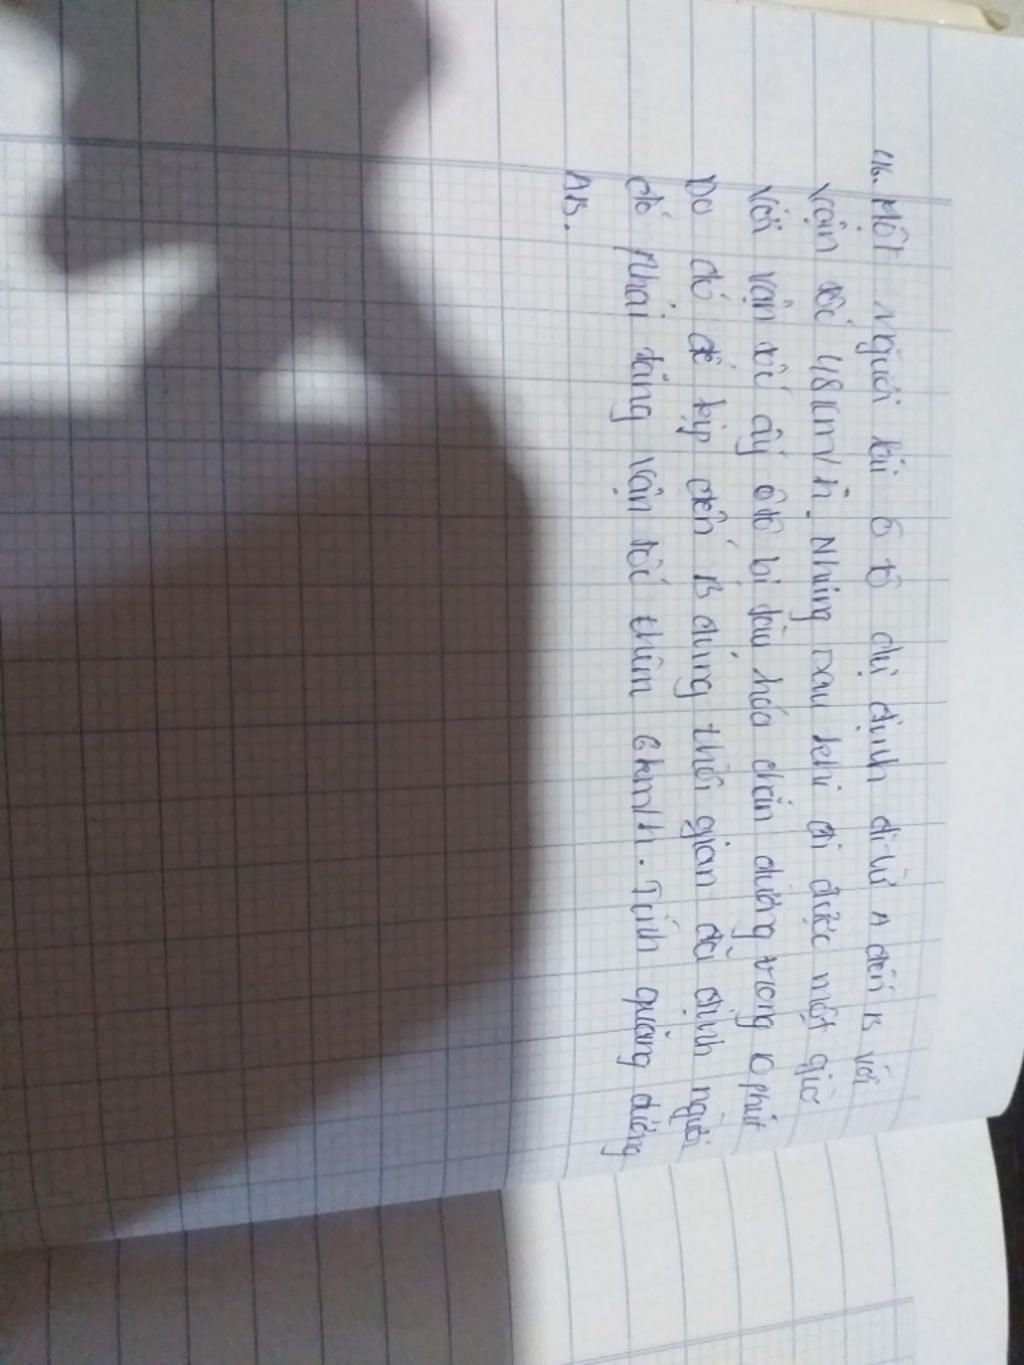 46. Một người lái ô tô dự định đi từ A đến B với
vận tốc 48km/h. Nhưng sau khi đi được một giờ
với vận tốc ấy ôtô bị tàu hỏa chắn đường trong 10 phút
Do đó để kịp đến B đúng thời gian đã định người
đó phải tăng vận tốc thêm 6km/h. Tính quãng đường
AB.